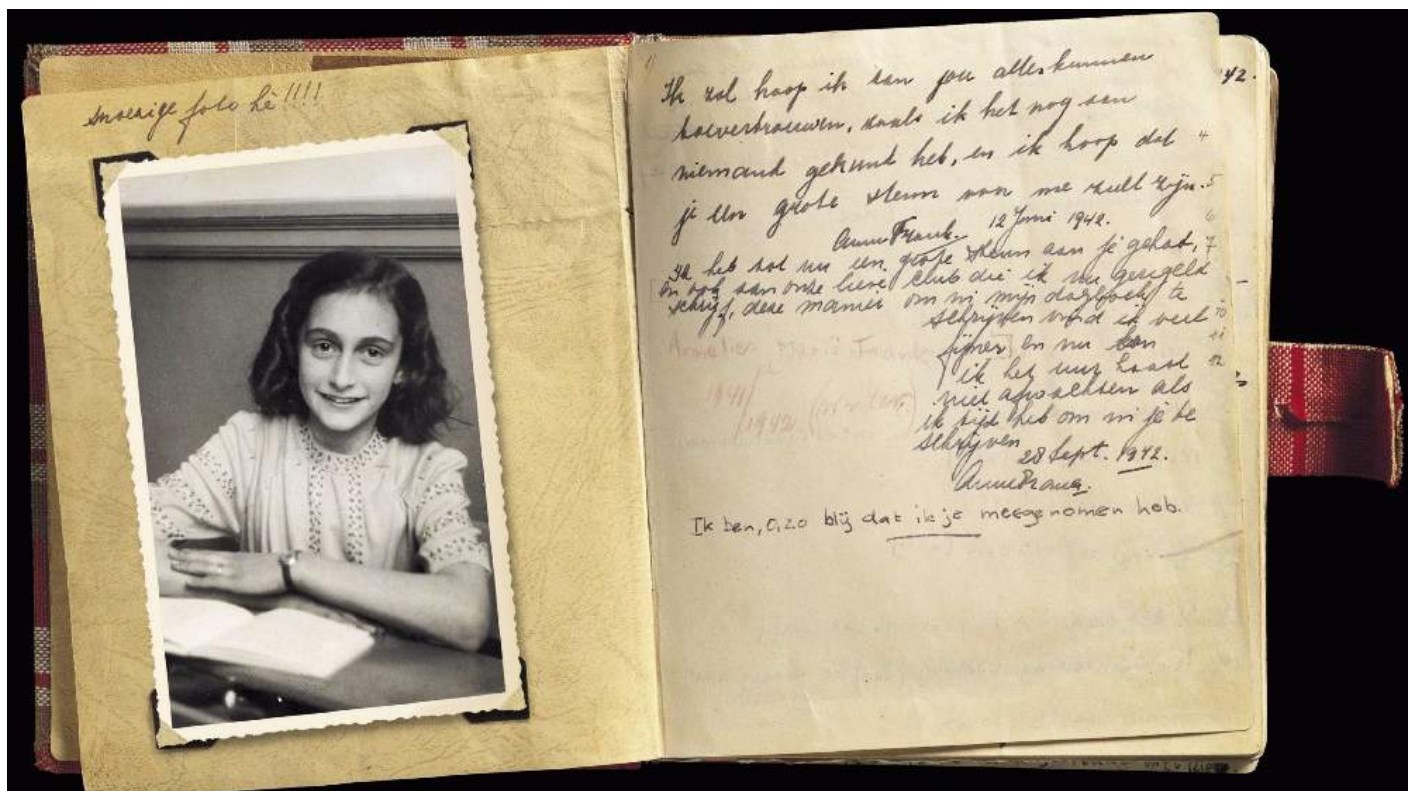 snoezige foto hè!!!!
42.
Ik zal hoop ik aan jou alles kunnen
toevertrouwen, zoals ik het nog aan
niemand gekund heb, en ik hoop dat 4
je een grote steun voor me zult zijn. 5
Anne Frank. 12 Juni 1942. 6
Ik heb tot nu een grote steun aan je gehad, 7
en ook aan onze lieve club die ik nu geregeld
schrijf, deze manier om in mijn dagboek te
schrijven vind ik veel 10
fijner en nu kan 11
ik het uur haast 12
niet afwachten als
ik tijd heb om in je te
schrijven
28 Sept. 1942.
Anne Frank.
Annelies Marie Frank
1941/
/1942.
Ik ben, o, zo blij dat ik je meegenomen heb.